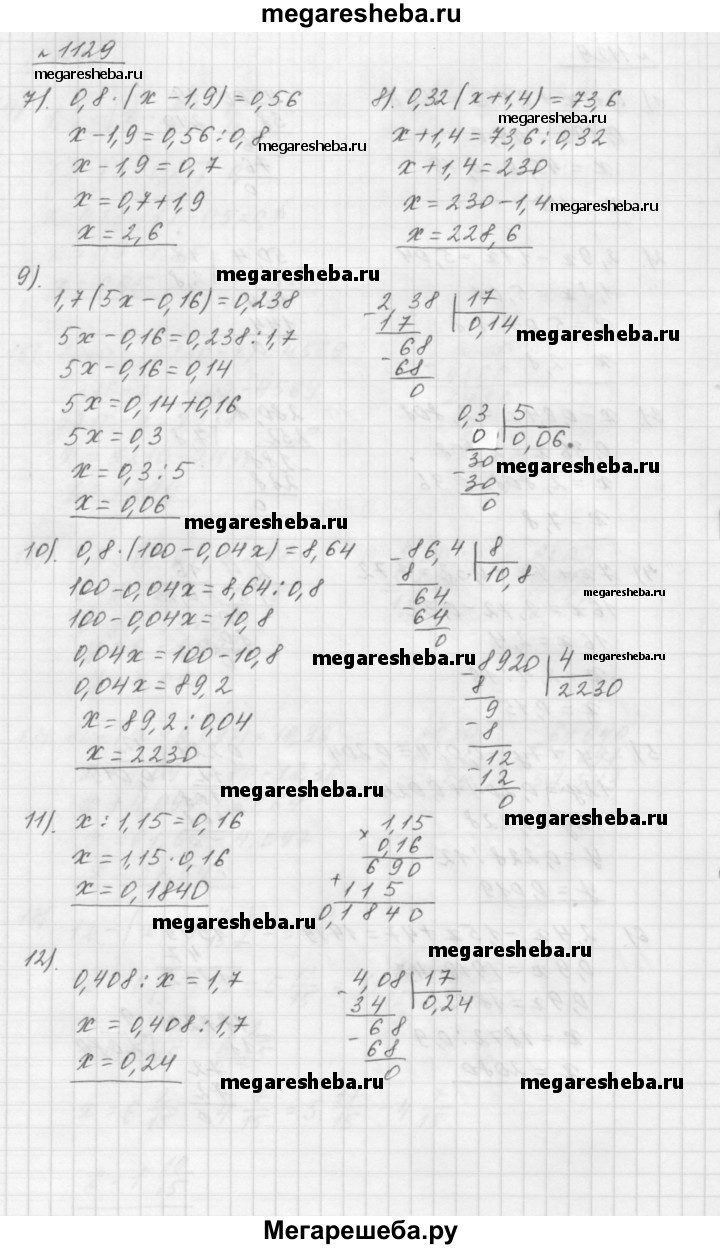 megaresheba.ru
№ 1129
megaresheba.ru
7). 0,8·(x-1,9)=0,56
x-1,9=0,56:0,8
megaresheba.ru
x-1,9=0,7
x=0,7+1,9
x=2,6
8). 0,32(x+1,4)=73,6
megaresheba.ru
x+1,4=73,6:0,32
x+1,4=230
x=230-1,4
megaresheba.ru
x=228,6
9).
megaresheba.ru
1,7(5x-0,16)=0,238
5x-0,16=0,238:1,7
5x-0,16=0,14
5x=0,14+0,16
5x=0,3
x=0,3:5
x=0,06
megaresheba.ru
- 2,38 | 17
17 | 0,14
megaresheba.ru
- 68
68
0
0,3 | 5
0 | 0,06.
- 30
megaresheba.ru
30
0
10). 0,8·(100-0,04x)=8,64
100-0,04x=8,64:0,8
100-0,04x=10,8
0,04x=100-10,8
megaresheba.ru
0,04x=89,2
x=89,2:0,04
x=2230
megaresheba.ru
- 86,4 | 8
8 | 10,8
- 64
megaresheba.ru
64
0
megaresheba.ru
- 8920 | 4
8 | 2230
9
- 8
- 12
12
0
megaresheba.ru
11). x:1,15=0,16
x=1,15·0,16
x=0,1840
megaresheba.ru
× 1,15
0,16
690
+ 115
0,1840
megaresheba.ru
12).
0,408:x=1,7
x=0,408:1,7
x=0,24
megaresheba.ru
- 4,08 | 17
34 | 0,24
- 68
68
0
megaresheba.ru
Мегарешеба.ру